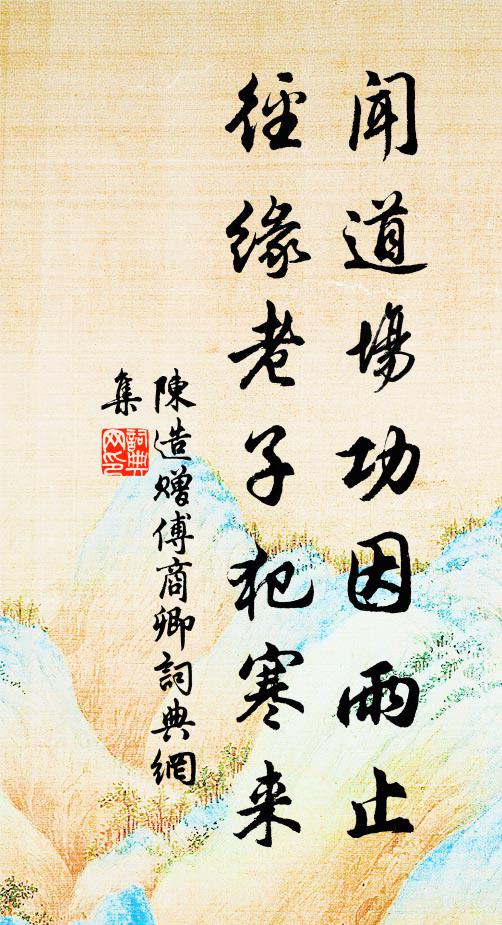 聞道場功因雨止
徑緣老子犯寒来
陳造贈傅商卿詞典網
集
詞典
网印